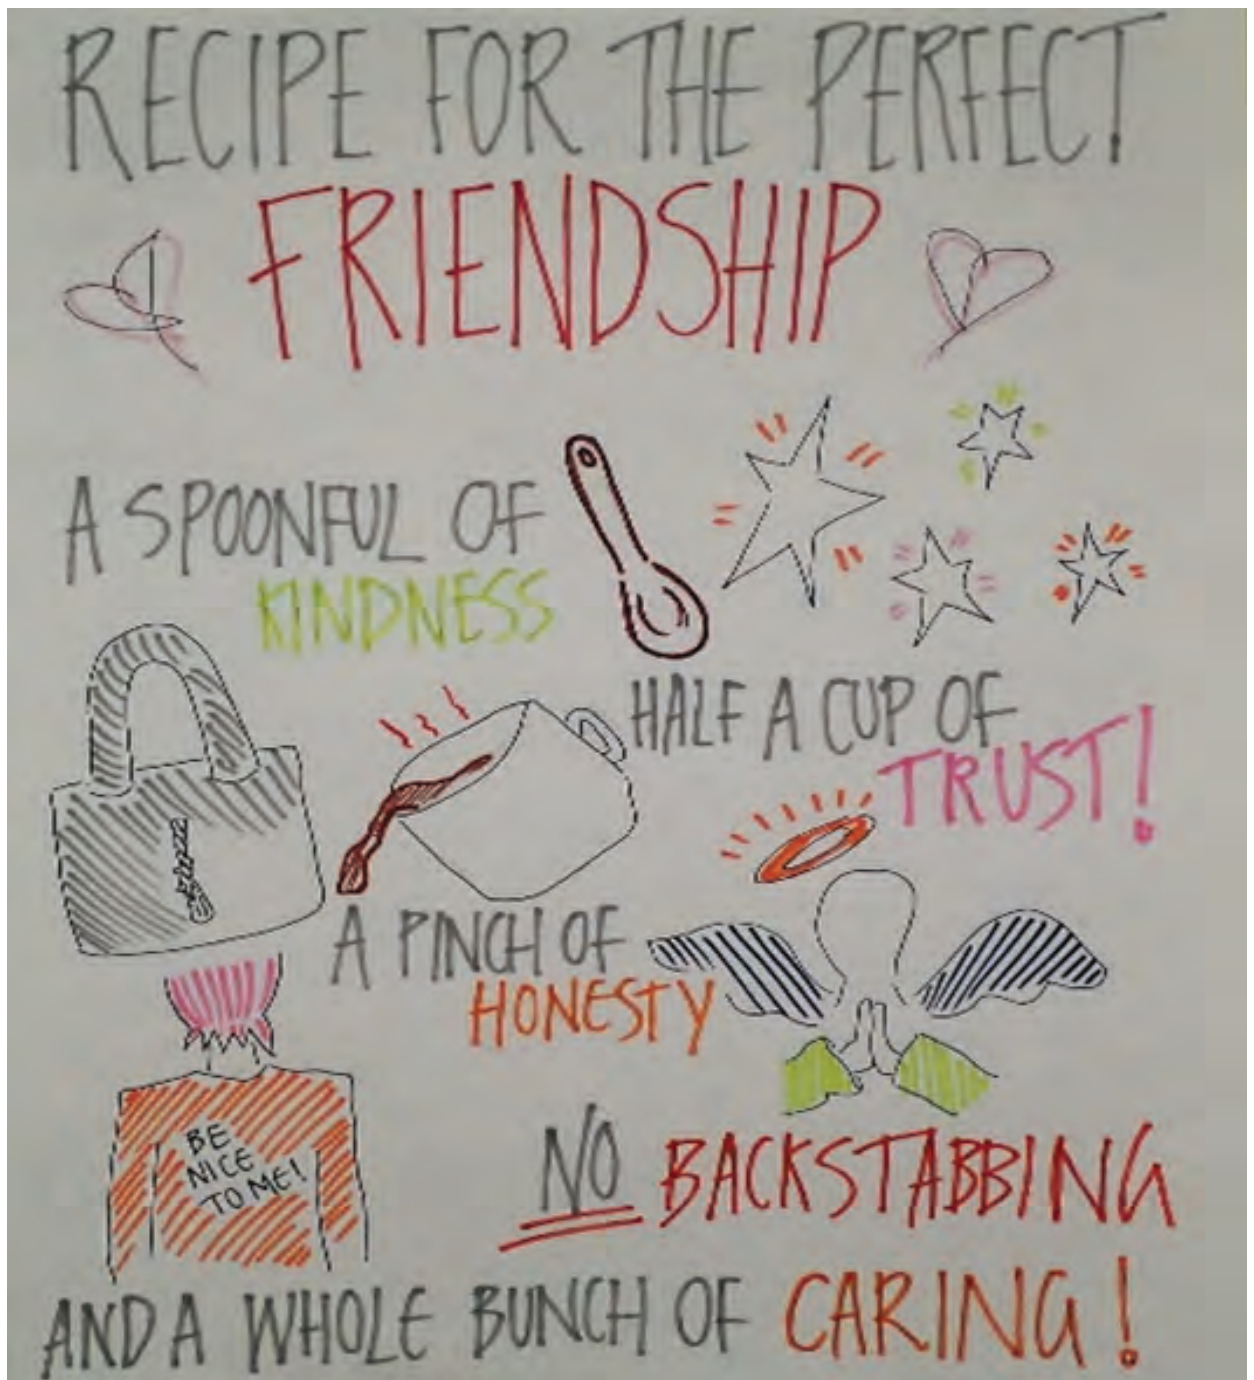 RECIPE FOR THE PERFECT
FRIENDSHIP
A SPOONFUL OF
KINDNESS
HALF A CUP OF
TRUST!
A PINCH OF
HONESTY
BE
NICE
TO ME!
NO BACKSTABBING
AND A WHOLE BUNCH OF CARING!